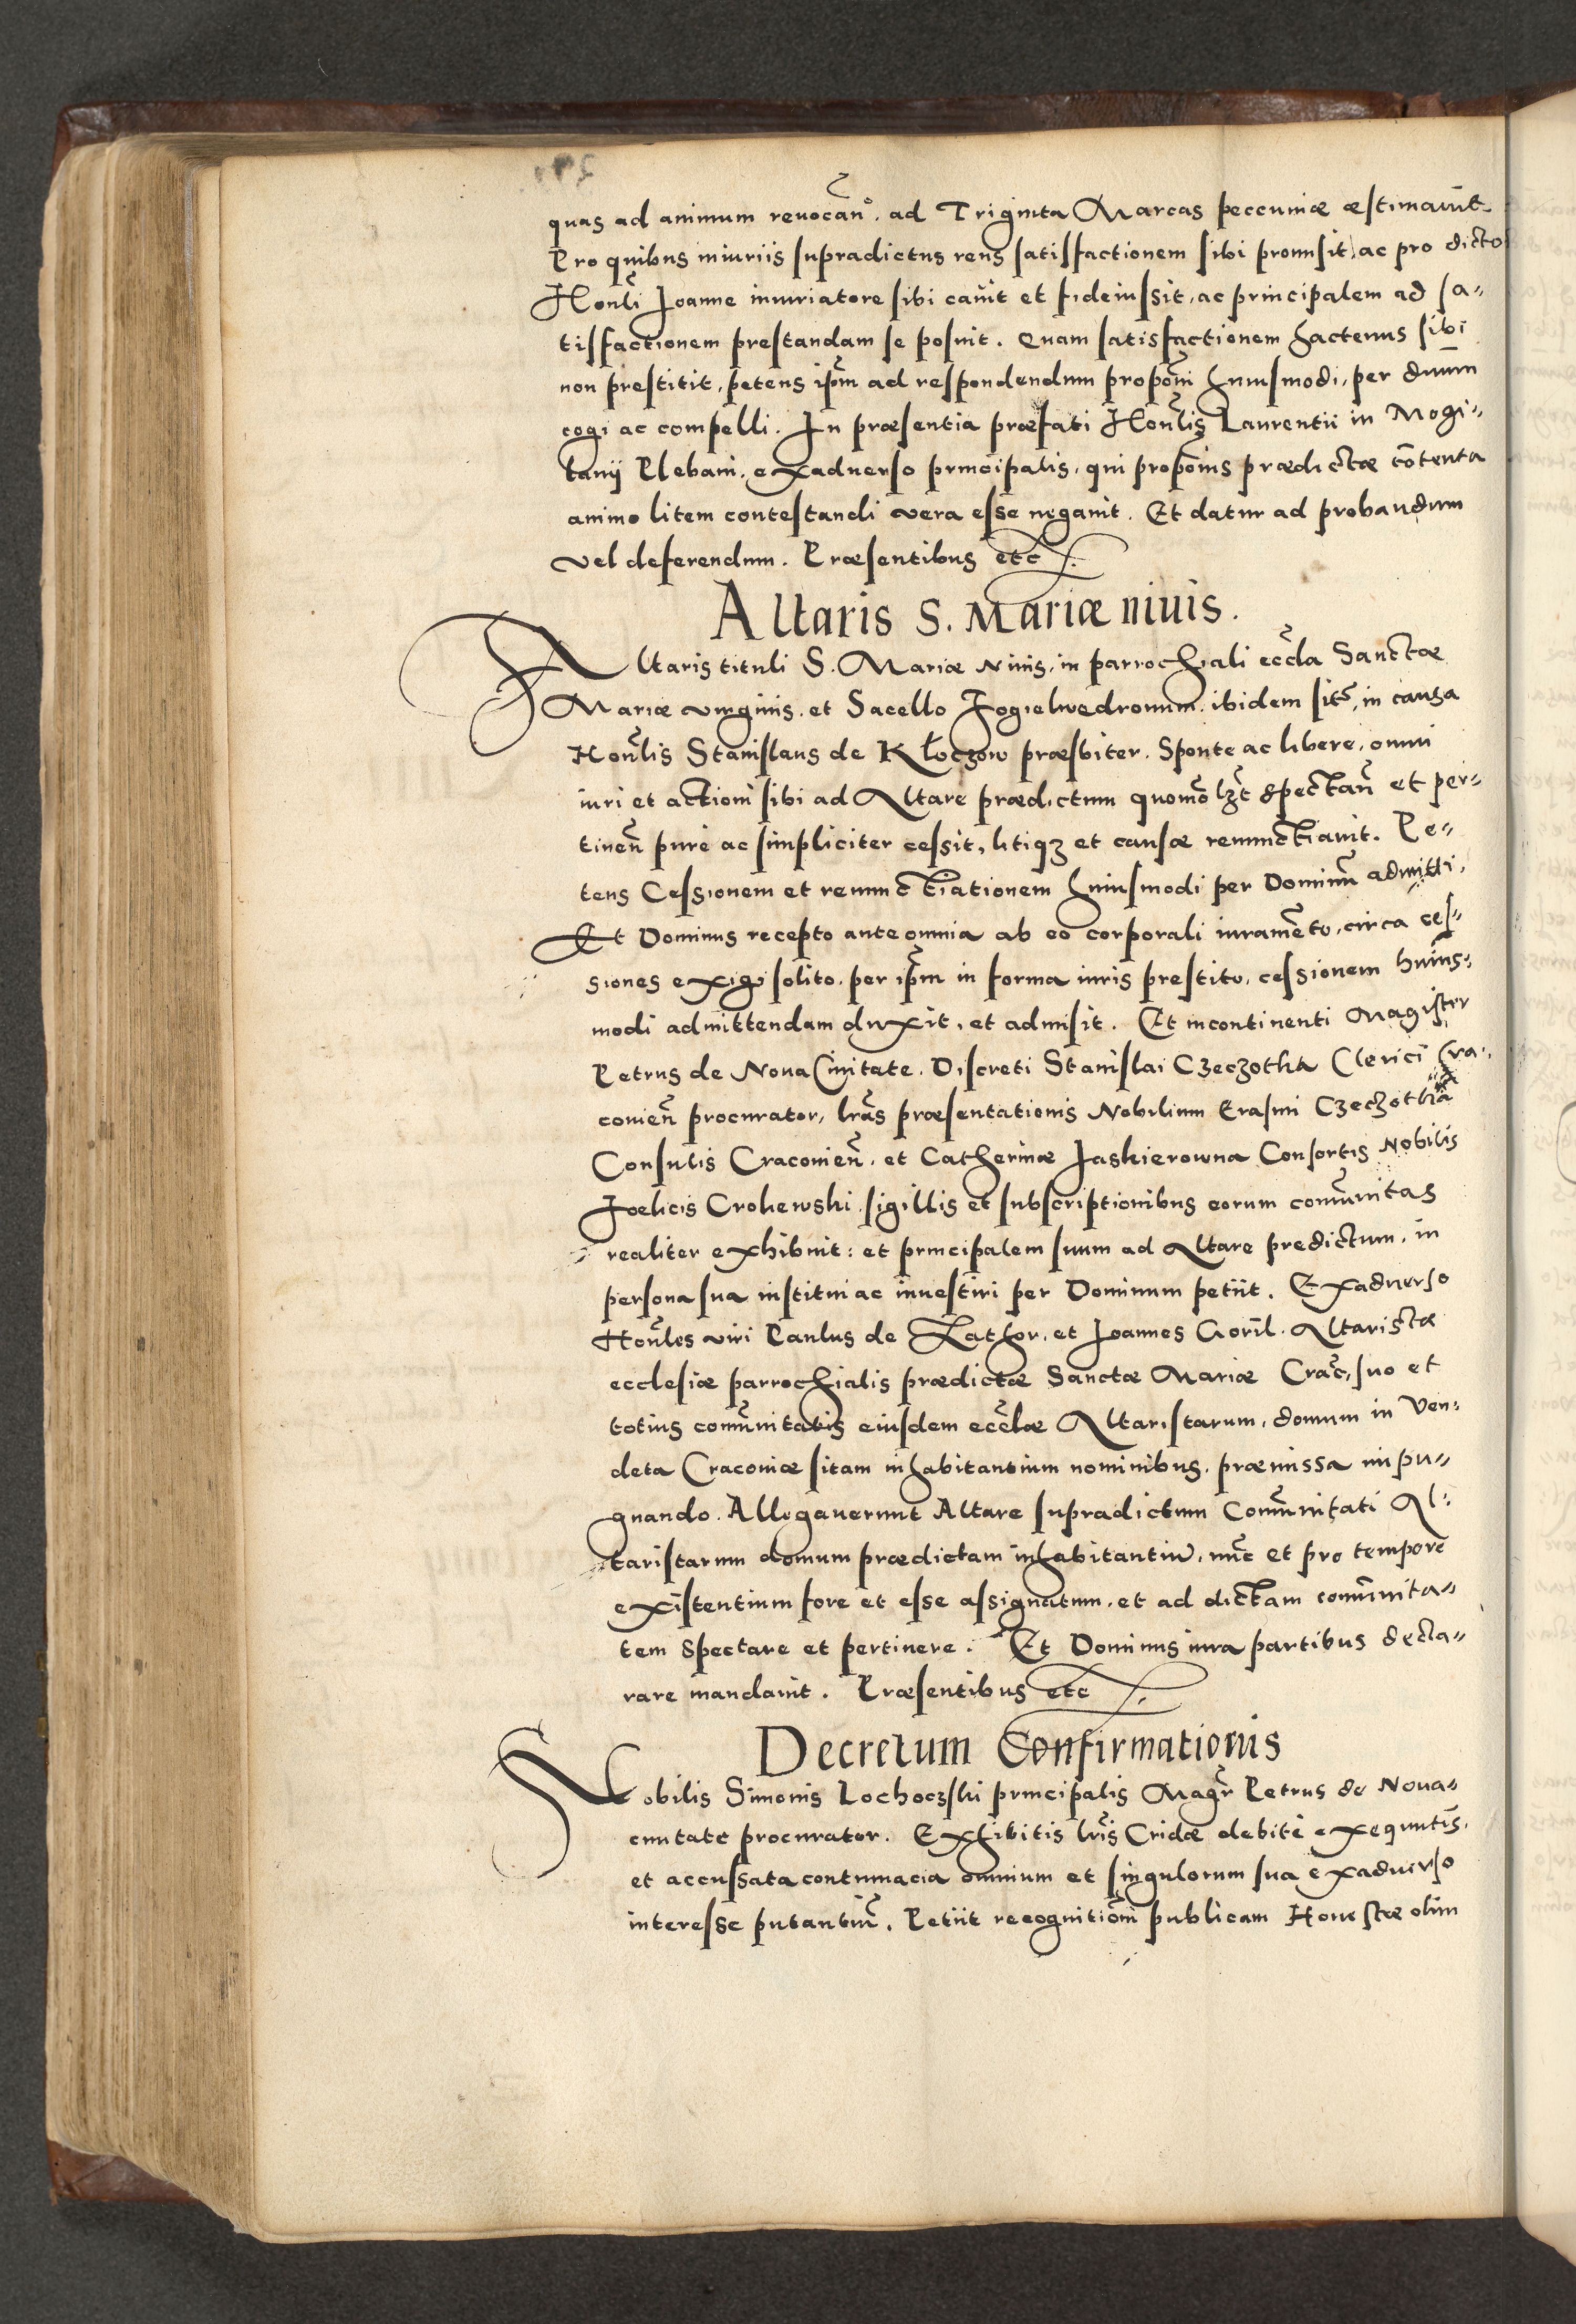 quas ad animum reuocan̄. ad Triginta Marcas peccuniæ æstimauit
Pro quibus iniuriis supradictus reus satisfactionem sibi promisit, ac pro dicto
Honli Joanne iniuriatore sibi cauit et fideiussit, ac principalem ad sa-
tisfactionem prestandam se posuit. Quam satisfactionem hactenus sibi
non prestitit, petens ipm̄ ad respondendum propōni huiusmodi, per dnum
cogi ac compelli. In præsentia præfati Honlis Laurentii in Mogi-
lany Plebani. exaduerso principalis, qui propōnis prædictæ cōtenta
animo litem contestandi vera esse negauit. Et datur ad probandum
vel deferendum. Præsentibus etc.
Altaris S. Mariæ niuis.
Altaris tituli S. Mariæ Niuis, in parrochiali eccla Sanctæ
Mariæ virginis, et Sacello Fogielwedronum ibidem sit̄, in causa
Honlis Stanislaus de Kłoczow præsbiter. Sponte ac libere, omni
iuri et actioni sibi ad Altare prædictum quomō lzt spectan̄ et per-
tinen̄ pure ac simpliciter cessit, litiqz et causæ renunctiauit. Pe-
tens Cessionem et renunctiationem huiusmodi per Dominū admitti.
Et Dominus recepto ante omnia ab eo corporali iuramēto, circa ces-
siones exigi solito, per ipm̄ in forma iuris prestito, cessionem huius-
modi admittendam duxit, et admisit. Et incontinenti Magister
Petrus de Noua Ciuitate. Discreti Stanislai Czeczotka Clerici Cra-
couien̄ procurator, lrās præsentationis Nobilium Erasmi Czeczotka
Consulis Cracouien̄. et Catherinæ Jaskierowna Consortis Nobilis
Foelicis Crokewski sigillis et subscriptionibus eorum comūnitas
realiter exhibuit: et principalem suum ad Altare predictum, in
persona sua institui ac inuestiri per Dominum petiit. Exaduerso
Honles viri Paulus de Zathor, et Joannes Goril. Altaristæ
ecclesiæ parrochialis prædictæ Sanctæ Mariæ Crac̄, suo et
totius comūnitatis eiusdem ecclæ Altaristarum, domum in Ven-
deta Cracouiæ sitam inhabitantium nominibus, præmissa impu-
gnando. Allegauerunt Altare supradictum Comūnitati Al-
taristarum domum prædictam inhabitantiū, nūc et pro tempore
existentium fore et esse assignatum, et ad dictam comūnita-
tem spectare et pertinere. Et Dominus iura partibus decla-
rare mandauit. Præsentibus etc
Decretum Confirmationis
Nobilis Simonis Lochoczski principalis Magr̄ Petrus de Noua-
ciuitate procurator. Exhibitis lris Cridæ debitè exequutis,
et accussata contumacia omnium et singulorum sua exaduerso
interesse putantiū. Petiit recognitiōni publicam Honestæ olim